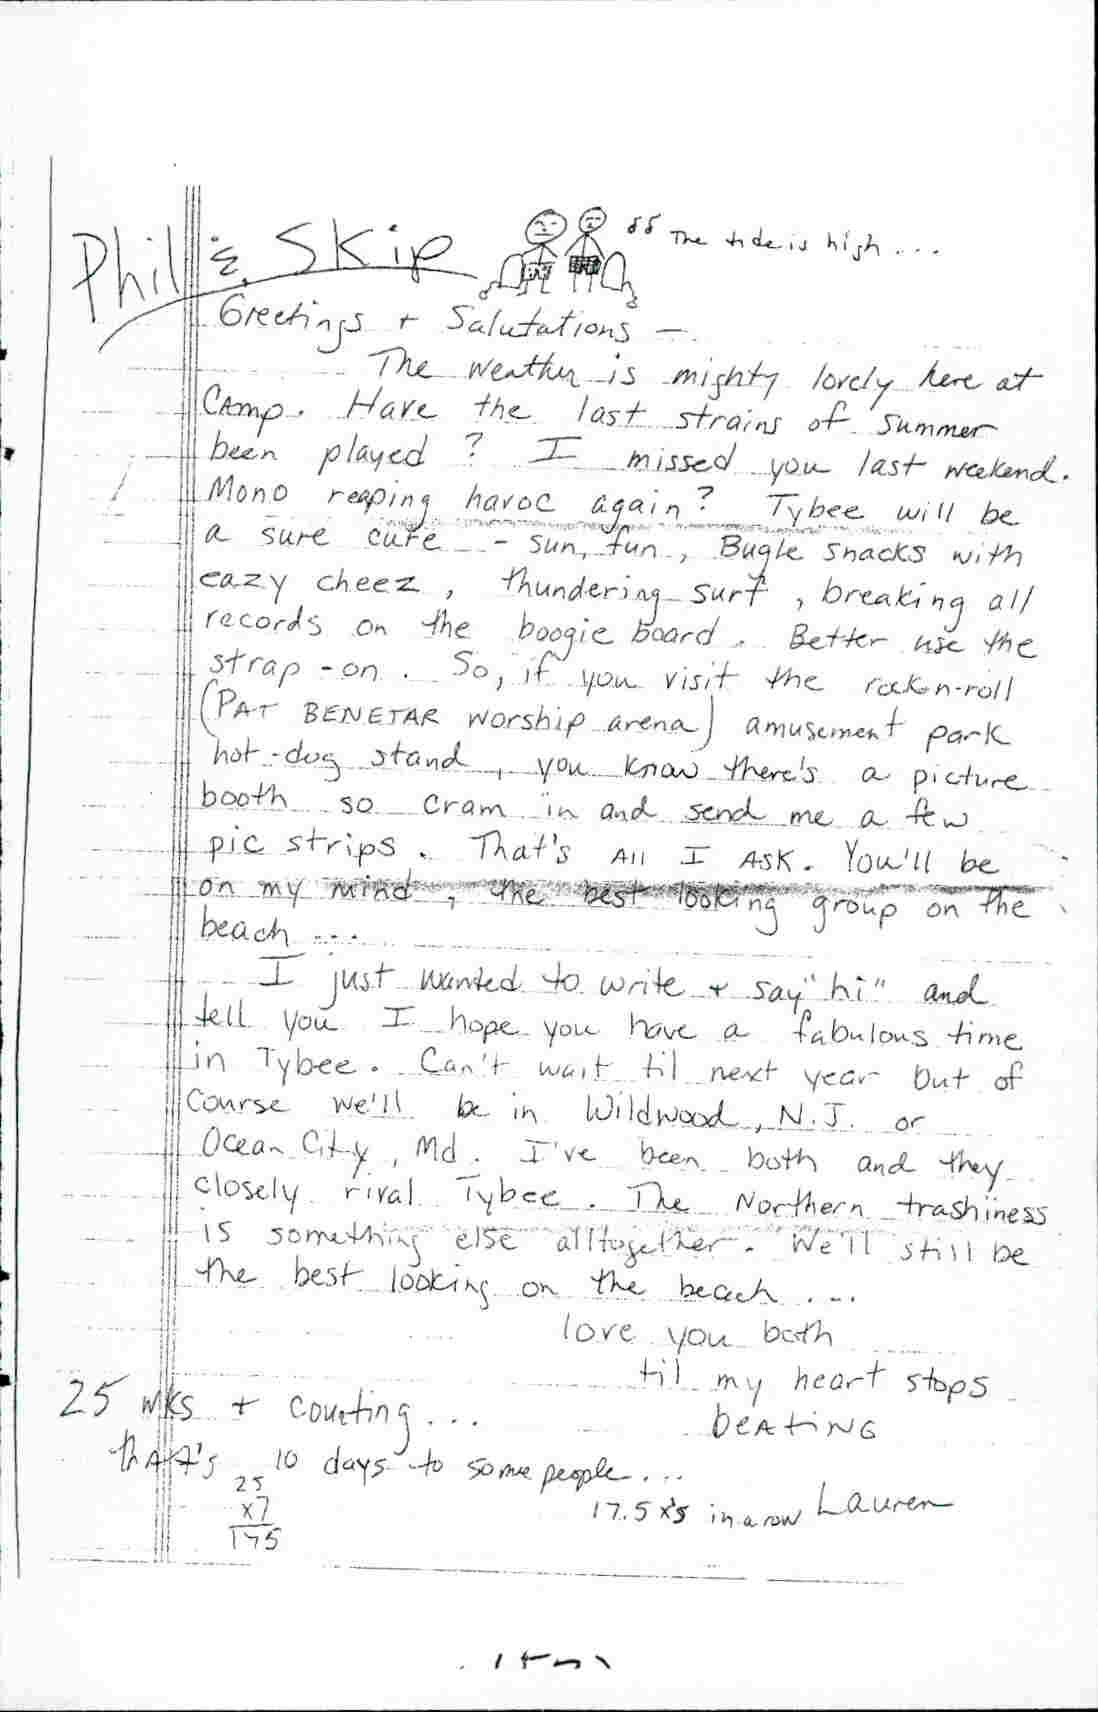 Phil & Skip
The tide is high...
Greetings + Salutations —
The weather is mighty lovely here at
Camp. Have the last strains of summer
been played? I missed you last weekend.
Mono reaping havoc again? Tybee will be
a sure cure - sun, fun, Bugle snacks with
eazy cheez, thundering surf, breaking all
records on the boogie board. Better use the
strap-on. So, if you visit the rock-n-roll
(PAT BENETAR worship arena) amusement park
hot-dog stand, you know there's a picture
booth so cram in and send me a few
pic strips. That's All I ASK. You'll be
on my mind, the best looking group on the
beach...
I just wanted to write + say "hi" and
tell you I hope you have a fabulous time
in Tybee. Can't wait til next year but of
course we'll be in Wildwood, N.J. or
Ocean City, Md. I've been both and they
closely rival Tybee. The Northern trashiness
is something else alltogether. We'll still be
the best looking on the beach...
love you both
til my heart stops
beATING
25 wks + counting...
thAt's 10 days to some people...
25
x7
175
17.5 x's in a row Lauren